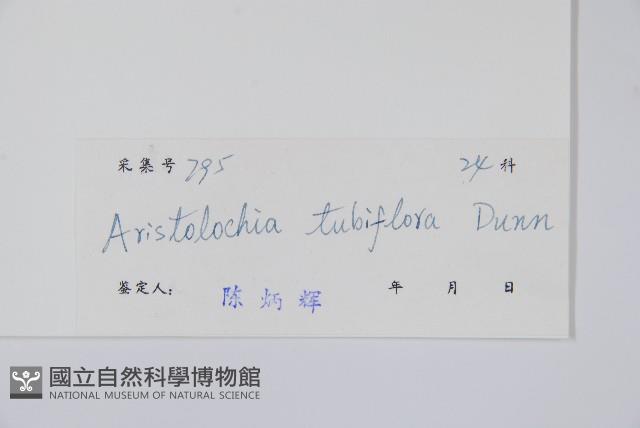 采集号 795 24 科
Aristolochia tubiflora Dunn
鉴定人: 陈炳辉 年 月 日
國立自然科學博物館
NATIONAL MUSEUM OF NATURAL SCIENCE